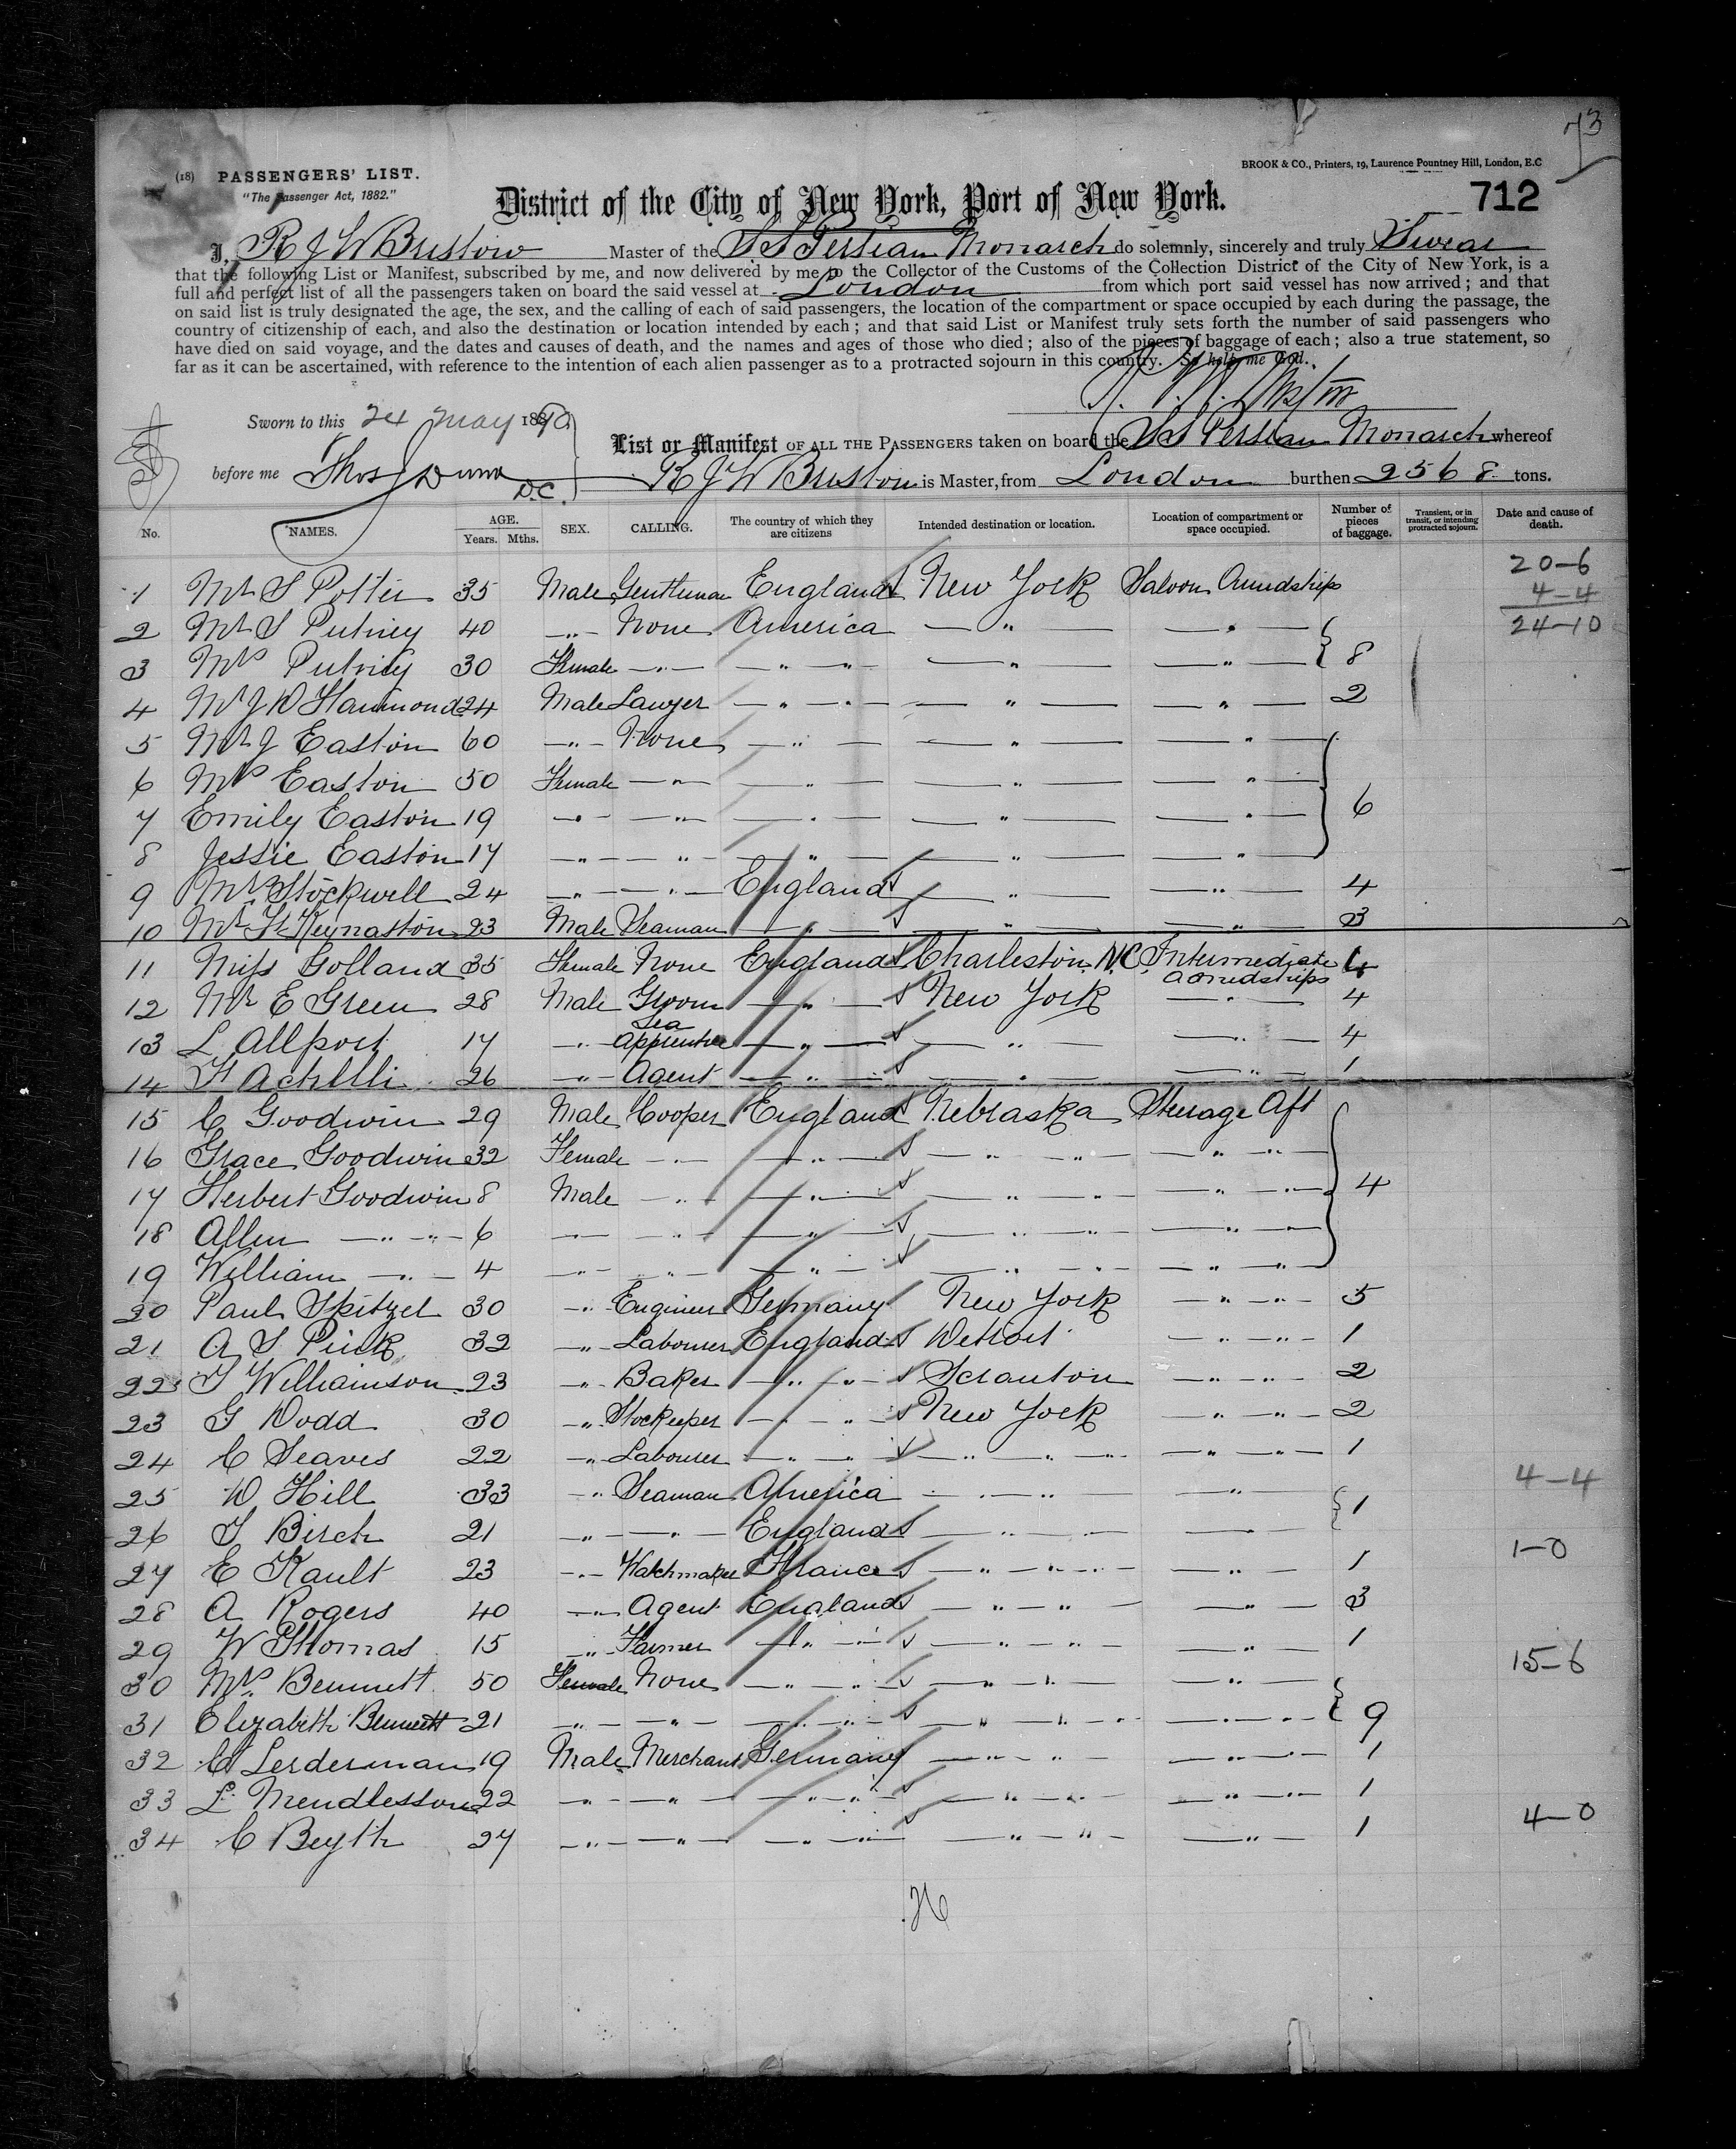 73
(18) PASSENGERS' LIST.
BROOK & CO., Printers, 19, Laurence Pountney Hill, London, E.C
"The Passenger Act, 1882."
712
District of the City of New York, Port of New York.
I, R J W Bristow Master of the S S Persian Monarch do solemnly, sincerely and truly Swear
that the following List or Manifest, subscribed by me, and now delivered by me to the Collector of the Customs of the Collection District of the City of New York, is a
full and perfect list of all the passengers taken on board the said vessel at London from which port said vessel has now arrived; and that
on said list is truly designated the age, the sex, and the calling of each of said passengers, the location of the compartment or space occupied by each during the passage, the
country of citizenship of each, and also the destination or location intended by each; and that said List or Manifest truly sets forth the number of said passengers who
have died on said voyage, and the dates and causes of death, and the names and ages of those who died; also of the pieces of baggage of each; also a true statement, so
far as it can be ascertained, with reference to the intention of each alien passenger as to a protracted sojourn in this country. So help me God.
Sworn to this 24 May 1890
List or Manifest OF ALL THE PASSENGERS taken on board the S S Persian Monarch whereof
before me Thos J Dunn D.C.
R J W Bristow is Master, from London burthen 2568 tons.
No. NAMES. AGE. Years. Mths. SEX. CALLING. The country of which they are citizens Intended destination or location. Location of compartment or space occupied. Number of pieces of baggage. Transient, or in transit, or intending protracted sojourn. Date and cause of death.
20-6
1 Mr S Potter 35 Male Gentleman England New York Saloon Amidships
4-4
2 Mr S Putney 40 -"- None America -"- -"-
24-10
3 Mrs Putney 30 Female -"- -"- "- -"- -"- 8
4 Mr J W Hammond 24 Male Lawyer -"- "- -"- -"- 2
5 Mr J Easton 60 -"- None -"- -"- -"-
6 Mrs Easton 50 Female -"- -"- -"- -"-
7 Emily Easton 19 -"- -"- -"- -"- -"- 6
8 Jessie Easton 17 -"- -"- -"- -"- -"-
9 Mrs Stockwell 24 -"- -"- England -"- -"- 4
10 Mr F Keynaston 23 Male Seaman -"- -"- -"- 3
11 Miss Golland 35 Female None England Charleston N.C. Intermediate Amidships 4
12 Mr E Green 28 Male Groom -"- New York -"- 4
13 L Allport 17 -"- Sea Apprentice -"- -"- -"- 4
14 F Achilli 26 -"- Agent -"- -"- -"- 1
15 C Goodwin 29 Male Cooper England Nebraska Steerage Aft
16 Grace Goodwin 32 Female -"- -"- -"- "- -"- "-
17 Herbert Goodwin 8 Male -"- -"- -"- "- -"- "- 4
18 Allen -"- "- 6 -"- -"- -"- -"- "- -"- "-
19 William -"- 4 -"- -"- -"- -"- "- -"- "-
20 Paul Spitzel 30 -"- Engineer Germany New York -"- "- 5
21 A S Pink 32 -"- Labourer England Detroit -"- "- 1
22 T Williamson 23 -"- Baker -"- "- Scranton -"- "- 2
23 G Dodd 30 -"- Stockeeper -"- "- New York -"- "- 2
24 C Seaves 22 -"- Labourer -"- "- -"- "- -"- "- 1
4-4
25 W Hill 33 -"- Seaman America -"- "- -"-
26 T Birch 21 -"- -"- England -"- "- -"- 1
1-0
27 E Kault 23 -"- Watchmaker France -"- "- -"- 1
28 A Rogers 40 -"- Agent England -"- "- -"- 3
29 W Thomas 15 -"- Farmer -"- "- -"- "- -"- 1
15-6
30 Mrs Bennett 50 Female None -"- "- -"- "- -"-
31 Elizabeth Bennett 21 -"- -"- -"- "- -"- "- -"- "- 9
32 C Lerderman 19 Male Merchant Germany -"- "- -"- "- 1
33 L Mendlesson 22 -"- -"- -"- "- -"- "- -"- "- 1
4-0
34 C Beyth 27 -"- -"- -"- "- -"- "- -"- 1